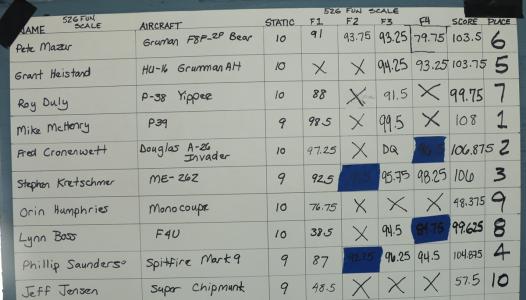 526 FUN SCALE 526 FUN SCALE
NAME AIRCRAFT STATIC F1 F2 F3 F4 SCORE PLACE
Pete Mazur Gruman F8F-2P Bear 10 91 93.75 93.25 79.75 103.5 6
Grant Heistand HU-16 Grumman AH 10 X X 94.25 93.25 103.75 5
Roy Duly P-38 Yippee 10 88 X 91.5 X 99.75 7
Mike McHenry P39 9 98.5 X 99.5 X 108 1
Fred Cronenwett Douglas A-26 Invader 10 97.25 X DQ 106.875 2
Stephen Kretschmer ME-262 9 92.5 95.75 98.25 106 3
Orin Humphries Monocoupe 10 76.75 X X X 48.375 9
Lynn Boss F4U 10 38.5 X 94.5 89.75 99.625 8
Phillip Saunders Spitfire Mark 9 9 87 92.75 96.25 94.5 104.875 4
Jeff Jensen Super Chipmunk 9 48.5 X X X 57.5 10